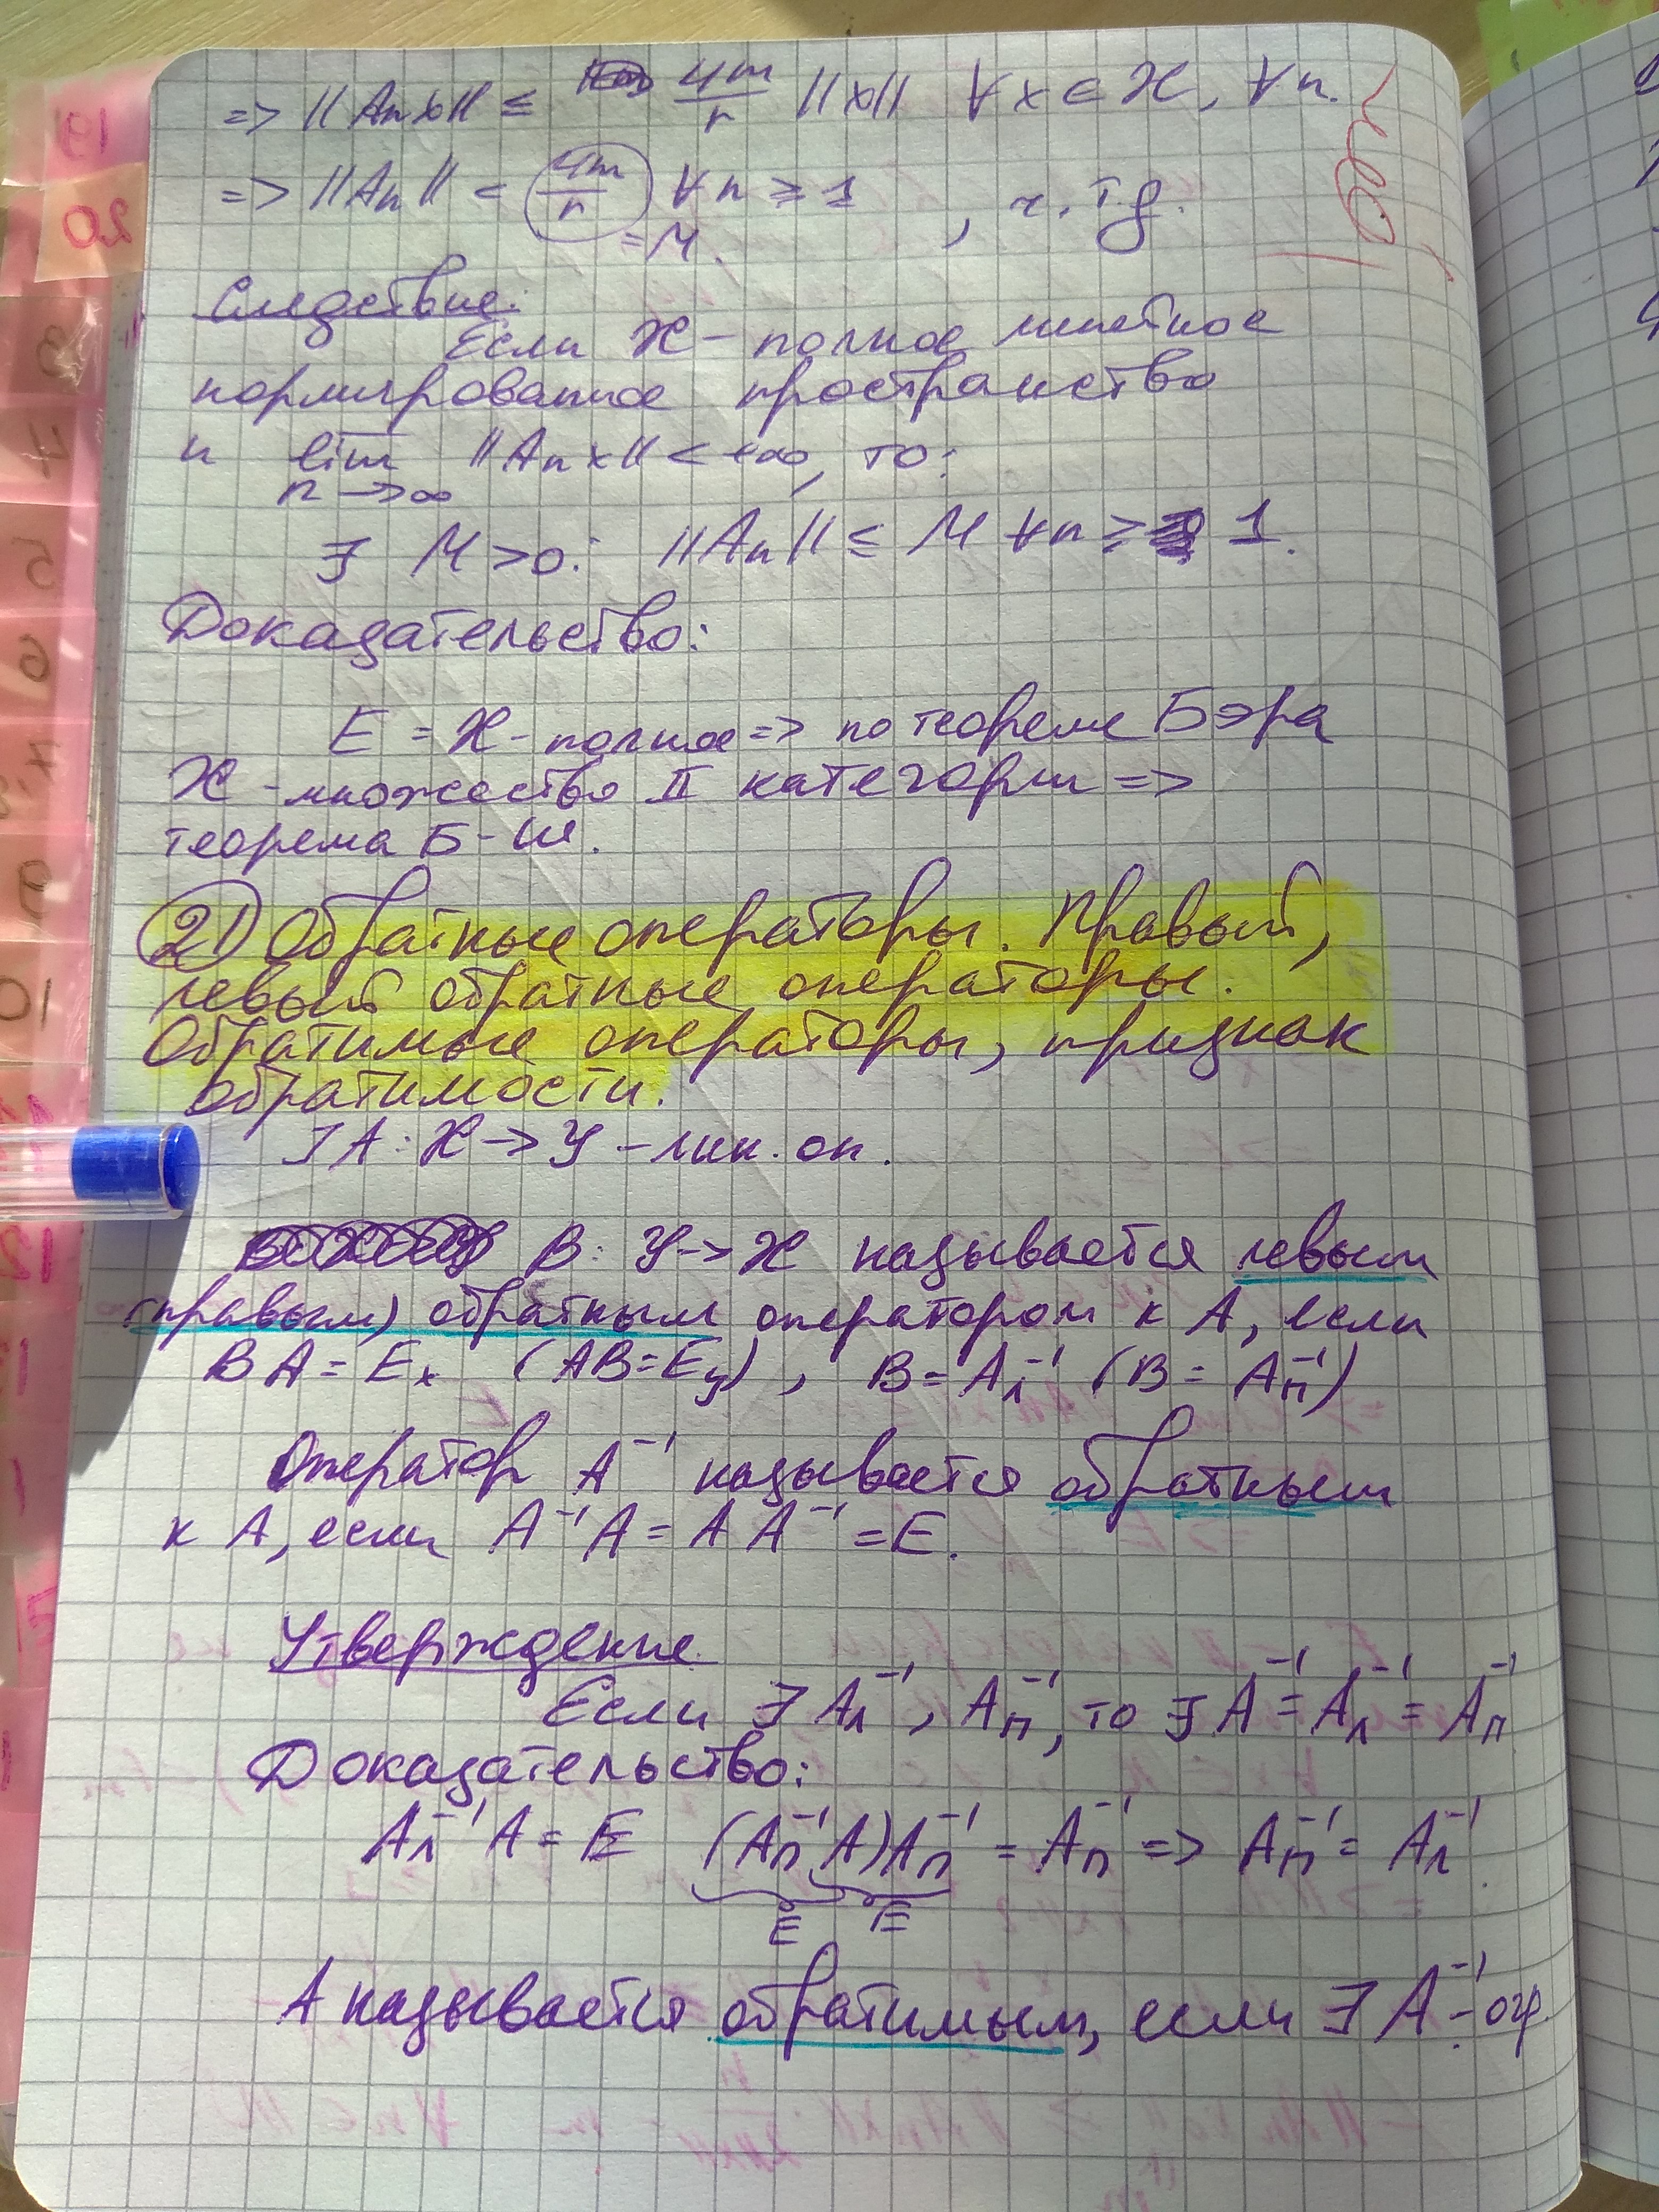 => ||Anx|| ≤ 4m/r ||x|| ∀x∈X, ∀n.
=> ||An|| ≤ 4m/r ∀n ≥ 1, ч.т.д.
= M.
Следствие:
Если X - полное линейное
нормированное пространство
и lim ||Anx|| < +∞, то:
n→∞
∃ M>0: ||An|| ≤ M ∀n ≥ 1.
Доказательство:
E = X - полное => по теореме Бэра
X - множество II категории =>
теорема Б-Ш.
21) Обратные операторы. Правый,
левый обратные операторы.
Обратимые операторы, признак
обратимости.
] A: X → Y - лин. оп.
B: Y → X называется левым
(правым) обратным оператором к A, если
BA = Ex (AB = Ey), B = Aл⁻¹ (B = Aп⁻¹)
Оператор A⁻¹ называется обратным
к A, если A⁻¹A = AA⁻¹ = E.
Утверждение.
Если ∃ Aл⁻¹, Aп⁻¹, то ∃ A⁻¹ = Aл⁻¹ = Aп⁻¹
Доказательство:
Aл⁻¹A = E (Aп⁻¹A)Aп⁻¹ = Aп⁻¹ => Aп⁻¹ = Aл⁻¹.
E E
A называется обратимым, если ∃ A⁻¹ - огр.
19
20
3
4
5
6
9
10